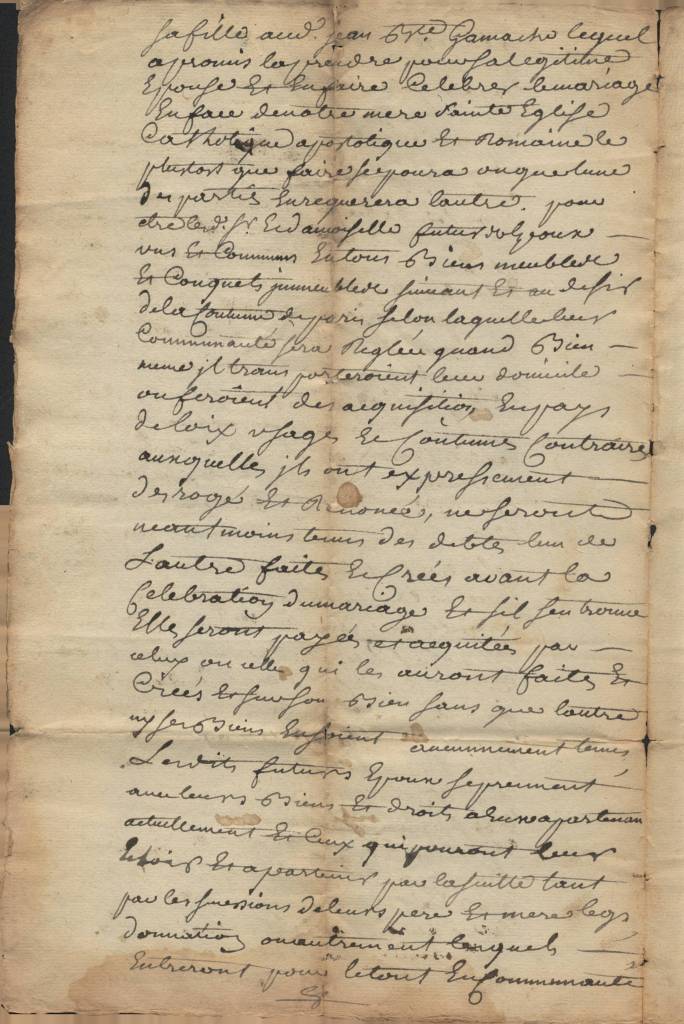 sa fille aud. jean Bte. Gamache lequel
a promis la prendre pour sa legitime
Epouse Et En faire Celebrer le mariage
En face de notre mere Sainte Eglise
Catholique apostolique Et Romaine le
plustost que faire se poura ou que l'une
des parties En requerera l'autre. pour
etre lesd. Sr. Et damoiselle futurs Epoux
uns Et Communs En tous Biens meubles
Et Conquets jmmeubles suivant Et au desir
de la Coutume de paris selon laquelle leur
Communauté sera Reglée quand Bien
meme jl transporteroient leur domicile
ou feroient des acquisitions En pays
de loix usages Et Coutumes Contraires
auxquelles jls ont expressement
desrogé Et Renoncé, ne seront
neantmoins tenus des debtes l'un de
L'autre faites Et Créés avant la
Celebration du mariage Et s'il s'en trouve
Elles seront payés et acquitées par
celux ou celle qui les auront faites Et
Créés Et sur son Bien sans que l'autre
ny ses Biens En soient aucunnement tenus
Lesdits futurs Epoux se prennent
avec leurs Biens Et droits a Eux apartenan
actuellement Et Ceux qui pouront leur
Echoir Et apartenir par la suitte tant
par les successions de leurs pere Et mere legs
donnation ou autrement lesquels
Entreront pour le tout En Communauté